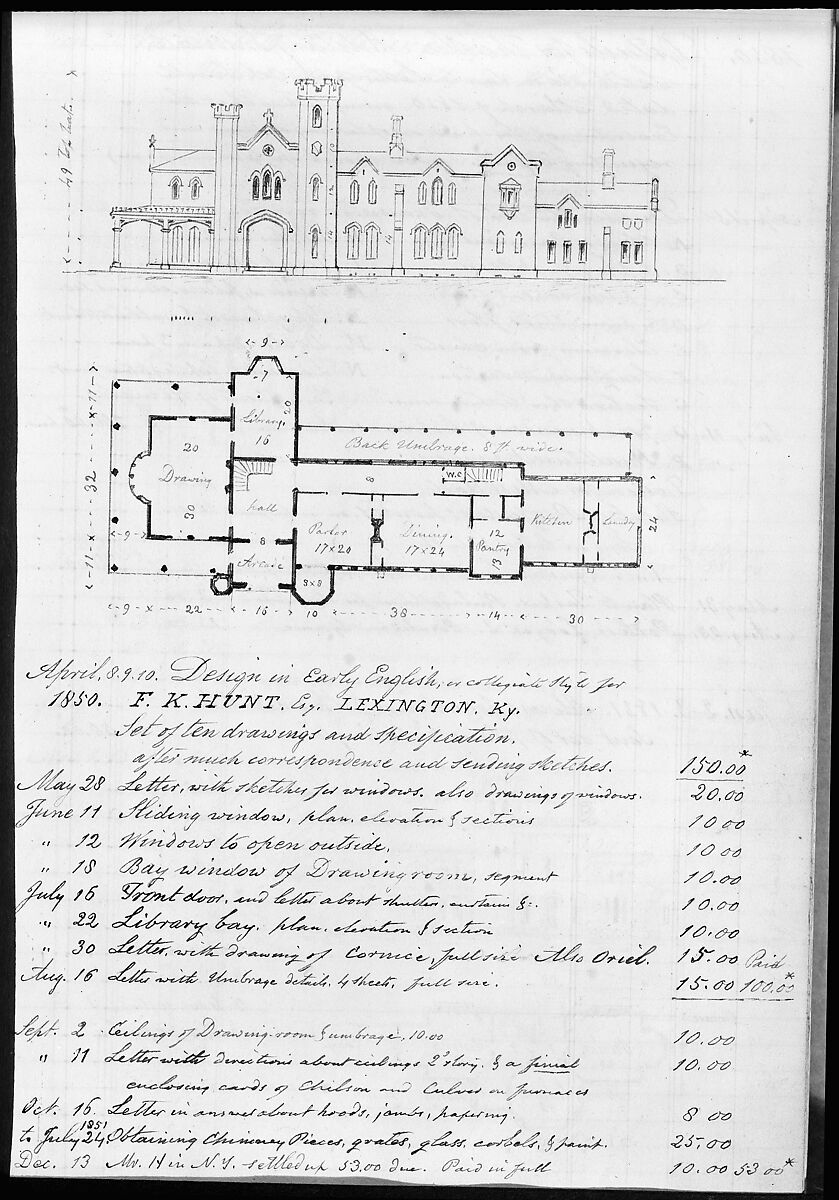 49 Top Turts.
10
12
14
14
9
7
20
Library
16
11
32
11
20
Drawing
30
9
Back Umbrage. 8 ft wide.
W.C
8
Hall
8
Arcade
Parlor
17x20
Dining.
17x24
12
Pantry
13
Kitchen
Lundy
24
8x8
9 x 22 16 10 38 14 30
April, 8.9.10. Design in Early English, or collegiate style for
1850. F. K. HUNT. Esq. LEXINGTON, Ky.
Set of ten drawings and specification.
after much correspondence and sending sketches. 150.00*
May 28 Letter, with sketches for windows. also drawings of windows. 20.00
June 11 Sliding window, plan, elevation & sections 10 00
" 12 Windows to open outside, 10 00
" 18 Bay window of Drawing room, segment 10.00
July 16 Front door, and letter about shutters, curtains &c. 10.00
" 22 Library bay. plan. elevation & section 10.00
" 30 Letter, with drawing of Cornice, full size Also Oriel. 15.00 Paid
Aug. 16 Letter with Umbrage details, 4 sheets, full size. 15.00 100.00*
Sept. 2 Ceilings of Drawing room & umbrage, 10.00 10.00
" 11 Letter with directions about ceilings 2d story, & a finial 10.00
enclosing cards of Chilson and Culver on furnaces
Oct. 16. Letter in answer about hoods, jambs, papering. 8 00
1851
to July 24 Obtaining Chimney Pieces, grates, glass, corbels, & paint. 25.00
Dec. 13 Mr. H in N.Y. settled up 53.00 due. Paid in full 10.00 53 00*